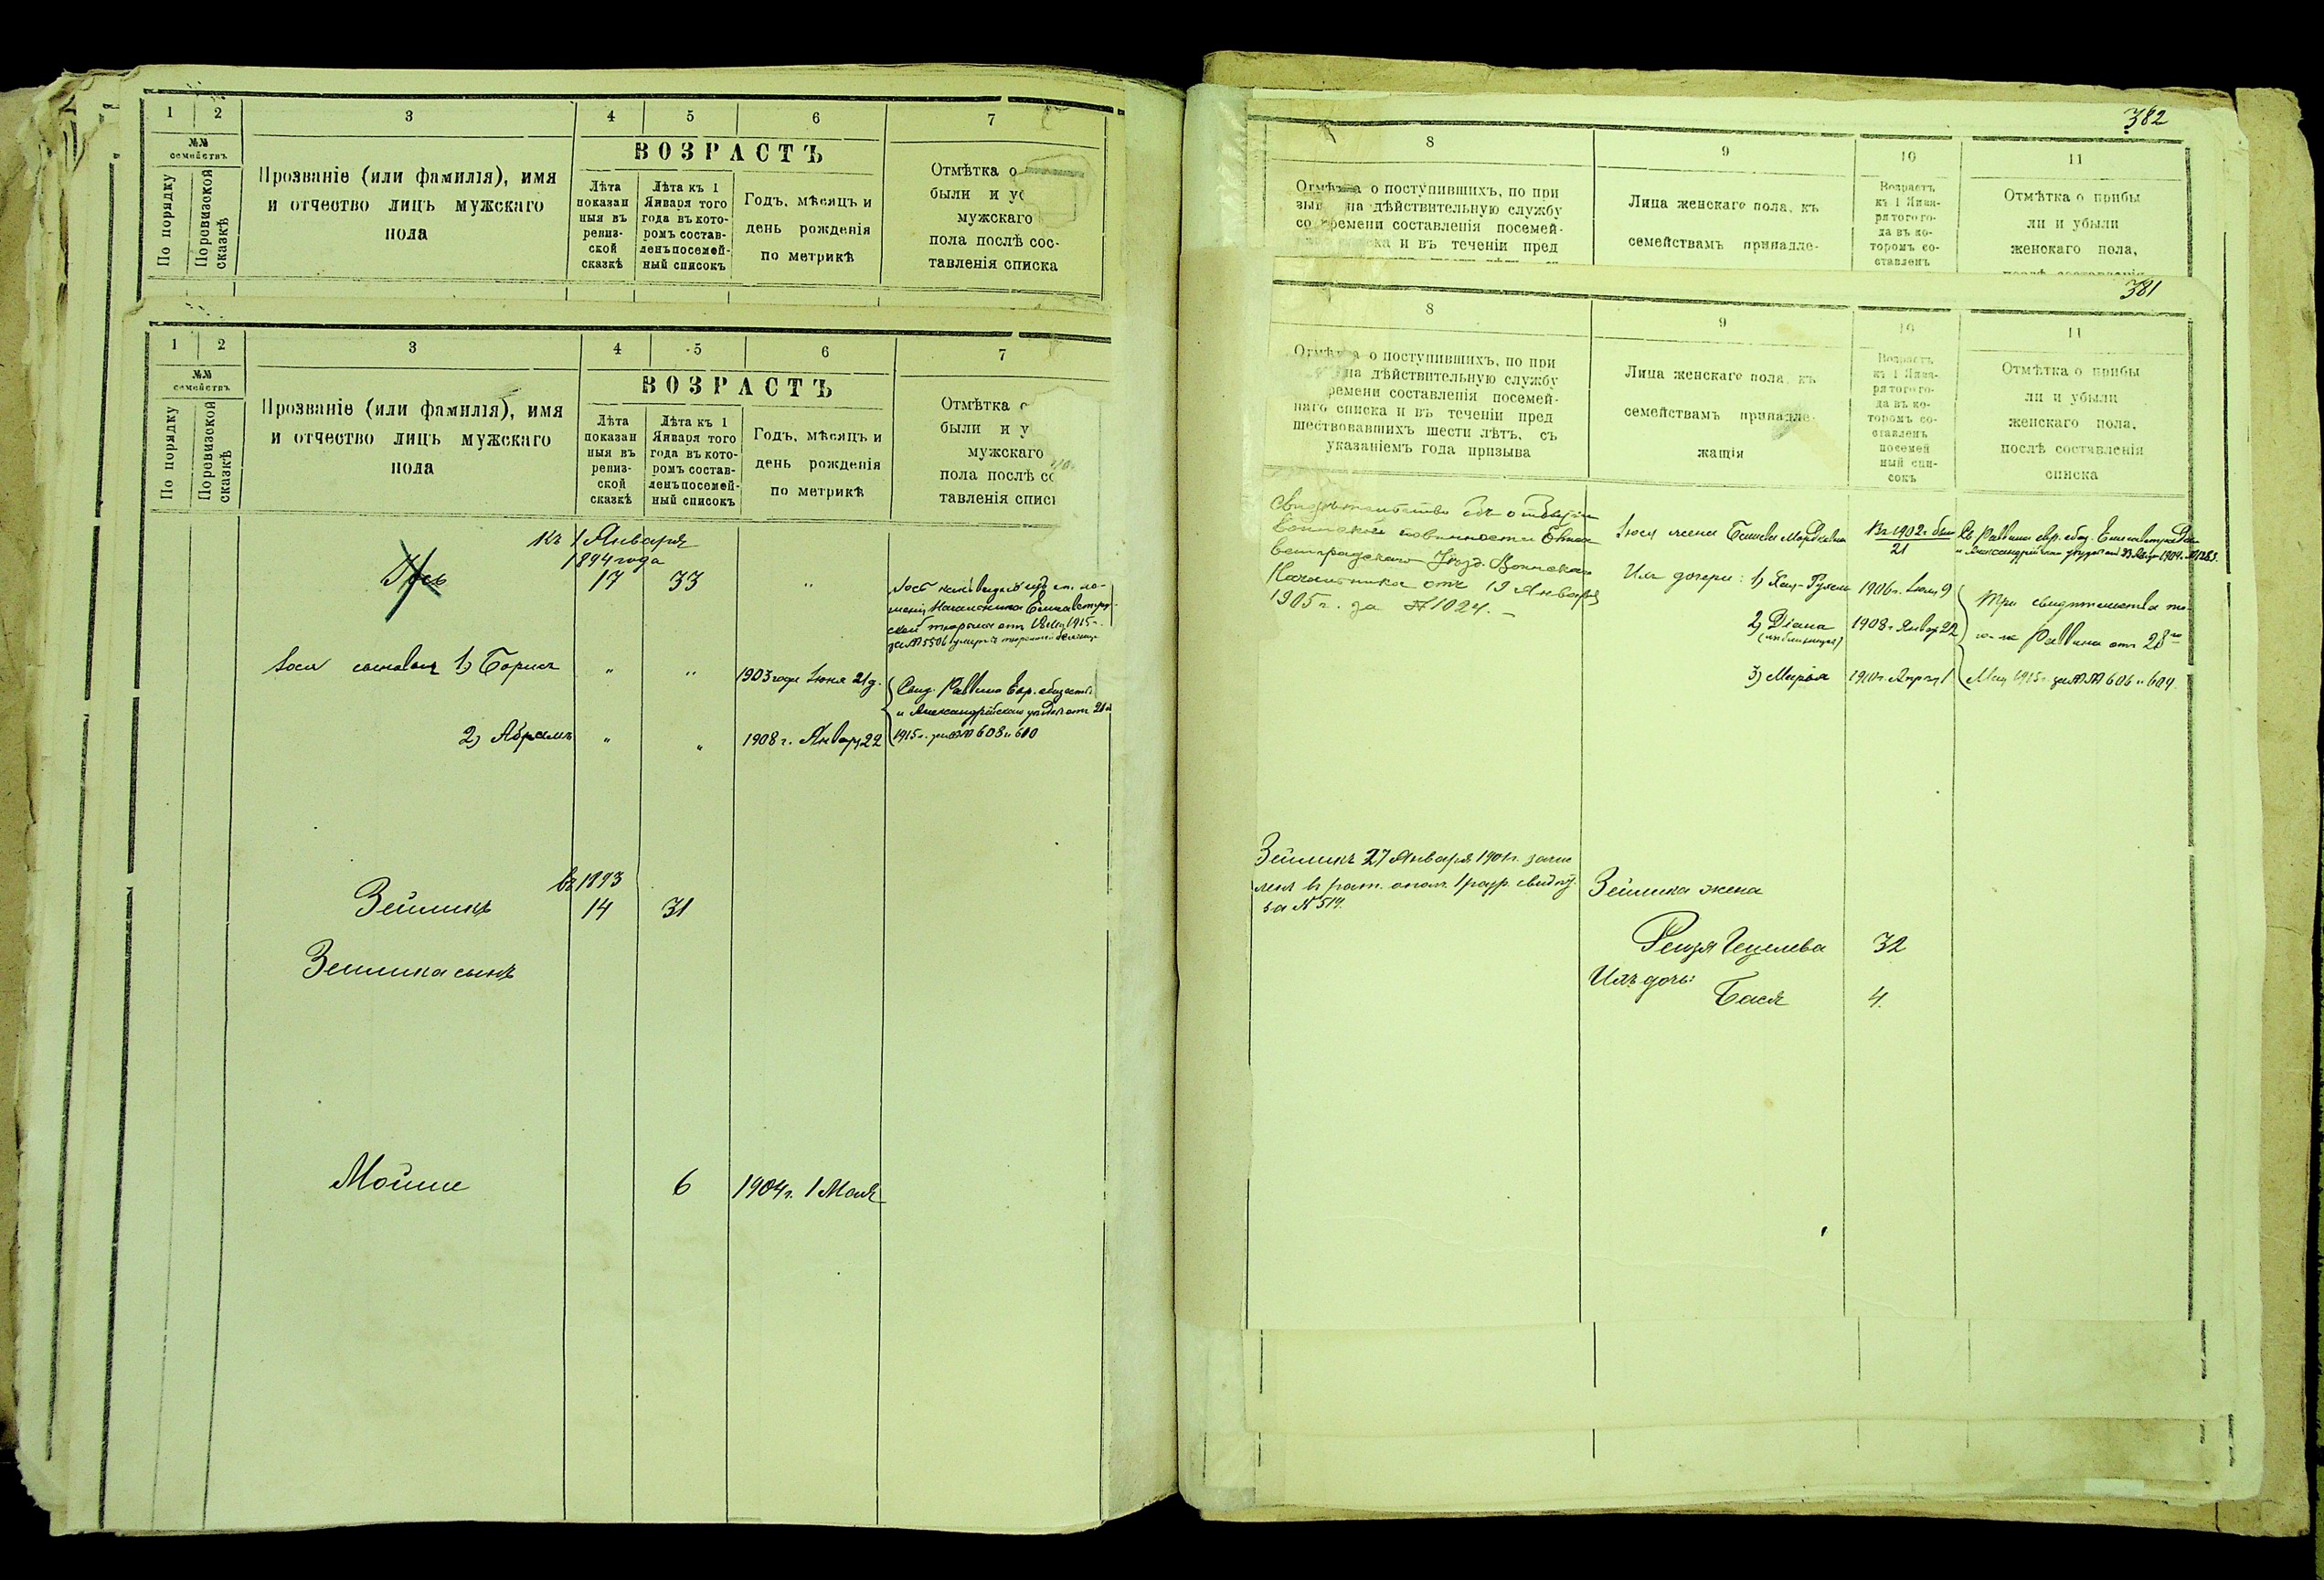 1 2 3 4 5 6 7
№№
семействъ
По порядку
По ревизской
сказкѣ
Прозваніе (или фамилія), имя
и отчество лицъ мужскаго
пола
ВОЗРАСТЪ
Лѣта
показан
ныя въ
ревиз-
ской
сказкѣ
Лѣта къ 1
Января того
года въ кото-
ромъ состав-
ленъ посемей-
ный списокъ
Годъ, мѣсяцъ и
день рожденія
по метрикѣ
Отмѣтка о
были и у
мужскаго
пола послѣ сос-
тавленія списка
1 2 3 4 5 6 7
№№
семействъ
По порядку
По ревизской
сказкѣ
Прозваніе (или фамилія), имя
и отчество лицъ мужскаго
пола
ВОЗРАСТЪ
Лѣта
показан
ныя въ
ревиз-
ской
сказкѣ
Лѣта къ 1
Января того
года въ кото-
ромъ состав-
ленъ посемей-
ный списокъ
Годъ, мѣсяцъ и
день рожденія
по метрикѣ
Отмѣтка
были и у
мужскаго
пола послѣ со
тавленія спис
Къ 1 Января
1894 года
17 33 "
Іось какъ видно изъ
Начальника Елисаветград-
ской тюрьмы отъ 1915 г.
за № 5506 умеръ
Іося сыновья 1) Борисъ " " 1903 года Іюня 21 д.
Свид. Раввина Евр. общества
и Александрійскаго уѣзда отъ
2) Абрамъ " " 1908 г. Январ. 22
1915 г. за №№ 608 и 610
въ 1893
Зейликъ 14 31
Зейлика сынъ
Мойше 6 1904 г. 1 Мая
382
8 9 10 11
Отмѣтка о поступившихъ, по при
зыв на дѣйствительную службу
со времени составленія посемей-
и въ теченіи пред
Лица женскаго пола, къ
семействамъ принадле-
Возрастъ
къ 1 Янва-
ря того го-
да въ ко-
торомъ со-
ставленъ
Отмѣтка о прибы
ли и убыли
женскаго пола,
послѣ составленія
381
8 9 10 11
Отмѣтка о поступившихъ, по при
на дѣйствительную службу
ремени составленія посемей-
наго списка и въ теченіи пред
шествовавшихъ шести лѣтъ, съ
указаніемъ года призыва
Лица женскаго пола, къ
семействамъ принадле-
жащія
Возрастъ
къ 1 Янва-
ря того го-
да въ ко-
торомъ со-
ставленъ
посемей
ный спи-
сокъ
Отмѣтка о прибы
ли и убыли
женскаго пола,
послѣ составленія
списка
Свидѣтельство объ отбытіи
воинской повинности Елиса
ветградскаго Уѣзд. Воинскаго
Начальника отъ 19 Января
1905 г. за № 1024.
Іося жена Мордкова
Въ 1902 г. было
21
Св. Раввина евр. общ. Елисаветград
и Александрійскаго уѣзда 1904 г.
Ихъ дочери: 1) 1906 г. Іюля 9
2) Діана 1908 г. Январ. 22
(близнецы)
3) Мирья 1910 г. Апрѣл. 1
Три свидѣтельства то-
го-же Раввина отъ 28го
Мая 1915 г. за №№ 606 и 604
Зейликъ 27 Января 1901 г. зачи
сленъ въ рат. опол. 1 разр. свид.
за № 514.
Зейлика жена
Рейзя Гецелева 32
Ихъ дочь:
Бася 4.